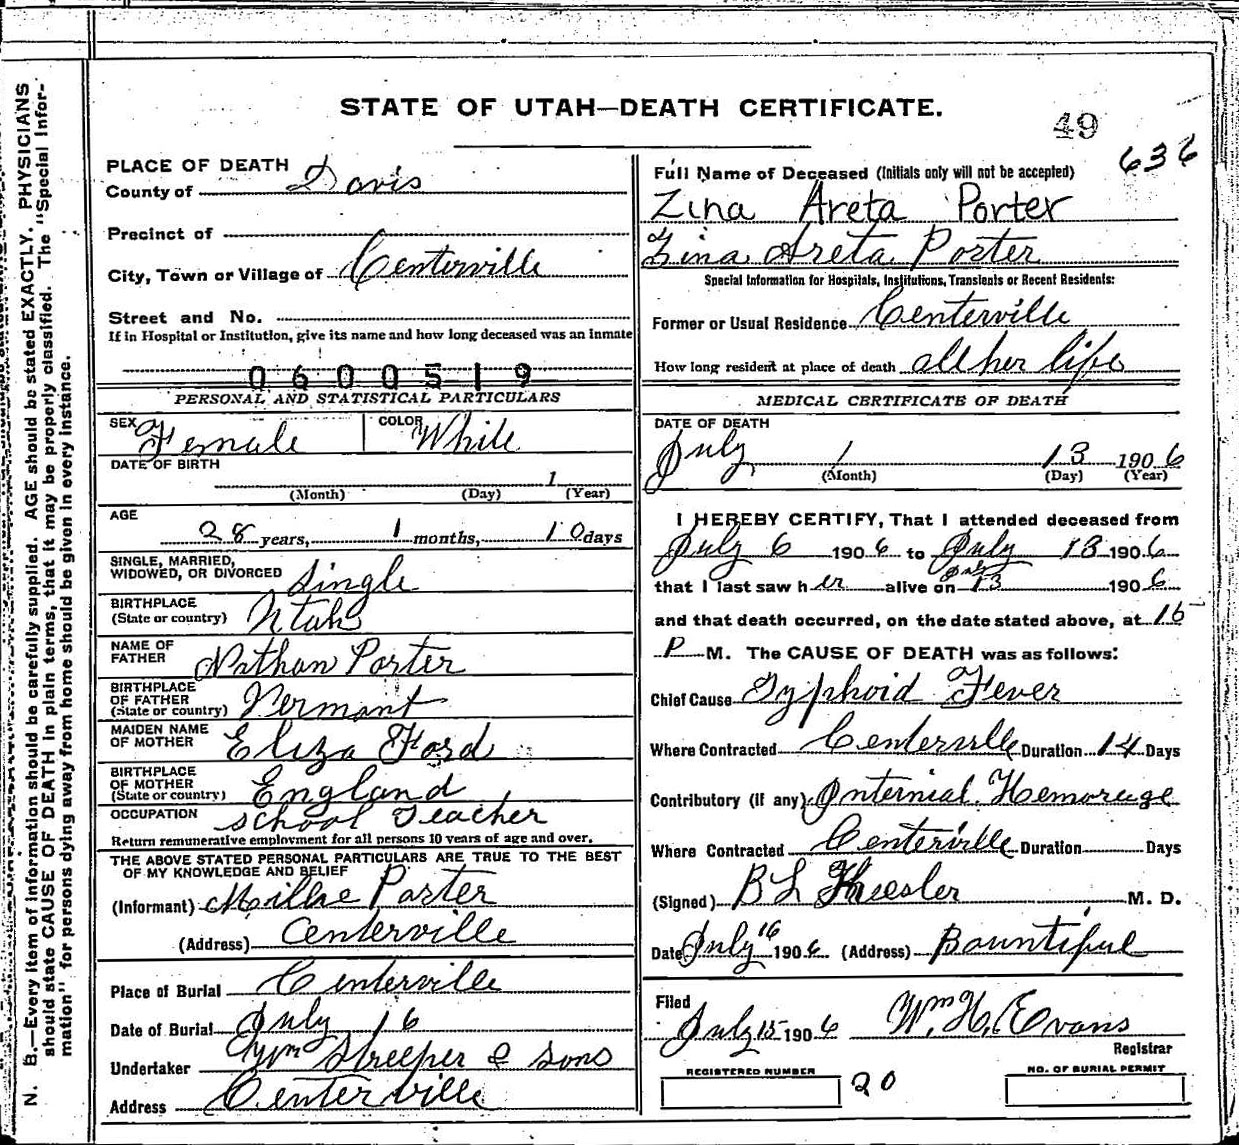 STATE OF UTAH—DEATH CERTIFICATE.
49
636
PLACE OF DEATH
County of Davis
Precinct of
City, Town or Village of Centerville
Street and No.
If in Hospital or Institution, give its name and how long deceased was an inmate
0600519
PERSONAL AND STATISTICAL PARTICULARS
SEX Female COLOR White
DATE OF BIRTH
1
(Month) (Day) (Year)
AGE
28 years, 1 months, 10 days
SINGLE, MARRIED,
WIDOWED, OR DIVORCED Single
BIRTHPLACE
(State or country) Utah
NAME OF
FATHER Nathan Porter
BIRTHPLACE
OF FATHER
(State or country) Vermont
MAIDEN NAME
OF MOTHER Eliza Ford
BIRTHPLACE
OF MOTHER
(State or country) England
OCCUPATION School Teacher
Return remunerative employment for all persons 10 years of age and over.
THE ABOVE STATED PERSONAL PARTICULARS ARE TRUE TO THE BEST
OF MY KNOWLEDGE AND BELIEF
(Informant) Millie Porter
(Address) Centerville
Place of Burial Centerville
Date of Burial July 16
Undertaker Wm Streeper & Sons
Address Centerville
Full Name of Deceased (Initials only will not be accepted)
Zina Areta Porter
Zina Areta Porter
Special Information for Hospitals, Institutions, Transients or Recent Residents:
Former or Usual Residence Centerville
How long resident at place of death all her life
MEDICAL CERTIFICATE OF DEATH
DATE OF DEATH
July 13 1906
(Month) (Day) (Year)
I HEREBY CERTIFY, That I attended deceased from
July 6 1906 to July 13 1906
that I last saw her alive on July 13 1906
and that death occurred, on the date stated above, at 15
P M. The CAUSE OF DEATH was as follows:
Chief Cause Typhoid Fever
Where Contracted Centerville Duration 14 Days
Contributory (if any) Internial Hemorage
Where Contracted Centerville Duration Days
(Signed) B L M. D.
Date July 16 1906 (Address) Bountiful
Filed
July 15 1906 Wm H. Evans
Registrar
REGISTERED NUMBER 20 NO. OF BURIAL PERMIT
N. B.—Every item of information should be carefully supplied. AGE should be stated EXACTLY. PHYSICIANS
should state CAUSE OF DEATH in plain terms, that it may be properly classified. The "Special Infor-
mation" for persons dying away from home should be given in every instance.